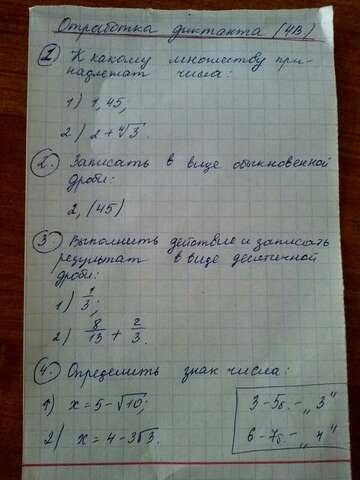 Отработка диктанта (4В)
1) К какому множеству при-
надлежат числа:
1) 1,45;
2) 2 + ⁴√3.
2. Записать в виде обыкновенной
дроби:
2,(45)
3) Выполнить действие и записать
результат в виде десятичной
дроби:
1) 1/3;
2) 8/13 + 2/3.
4. Определить знак числа:
1) x = 5 - √10;
2) x = 4 - 3√3.
3 - 5б. - „3"
6 - 7б - „4"